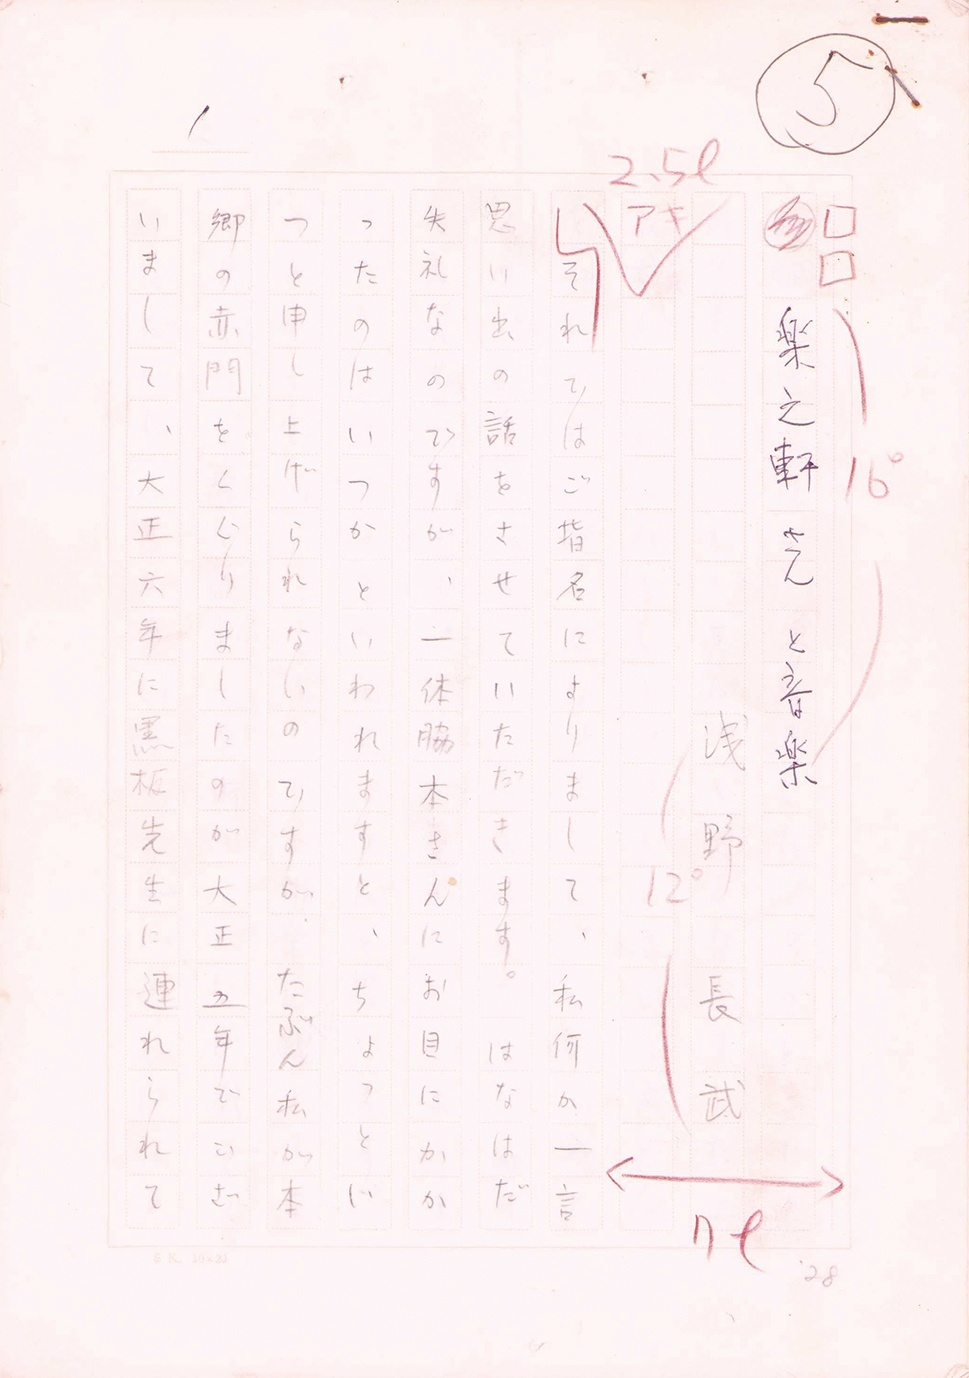 5
1
2.5ℓ
アキ
楽之軒さんと音楽
16°
浅野長武
12°
それではご指名によりまして、私何か一言
思い出の話をさせていただきます。はなはだ
失礼なのですが、一体脇本さんにお目にかか
ったのはいつかといわれますと、ちょっとい
つと申し上げられないのですが、たぶん私が本
郷の赤門をくぐりましたのが大正五年でござ
いまして、大正六年に黒板先生に連れられて
7ℓ
'28